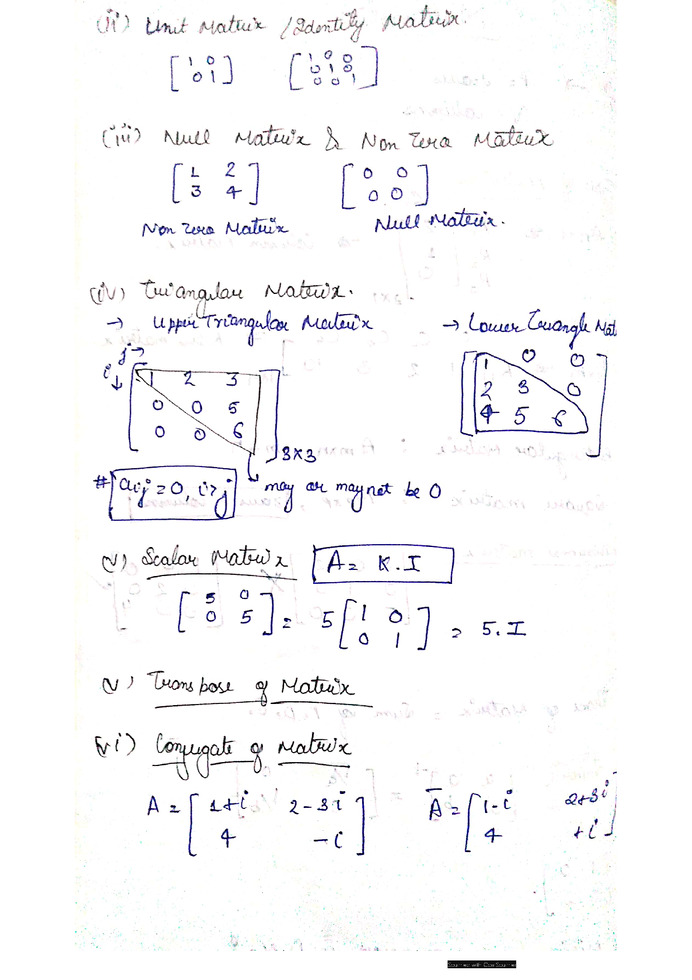 (ii) Unit Matrix / Identity Matrix.
[1 0 [1 0 0
0 1] 0 1 0
0 0 1]
(iii) Null Matrix & Non Zero Matrix
[1 2 [0 0
3 4] 0 0]
Non Zero Matrix Null Matrix.
(iv) Triangular Matrix.
→ Upper Triangular Matrix → Lower Triangle Mat
j→
i↓ [1 2 3 [1 0 0
0 0 5 2 3 0
0 0 6]3×3 4 5 6]
# aij = 0, i>j may or may not be 0
(v) Scalar Matrix A = K.I
[5 0 = 5 [1 0 = 5.I
0 5] 0 1]
(v) Transpose of Matrix
(vi) Conjugate of Matrix
A = [1+i 2-3i Ā = [1-i 2+3i
4 -i] 4 +i]
Scanned with CamScanner